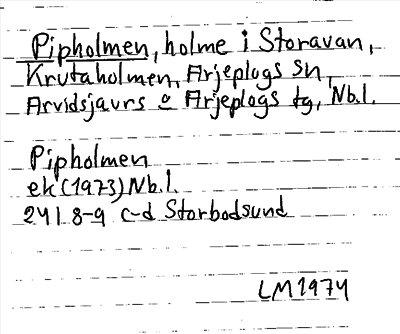 Pipholmen, holme i Storavan,
Krutaholmen, Arjeplogs sn,
Arvidsjaurs o Arjeplogs tg, Nb.l.
Pipholmen
ek (1973) Nb.l.
24 I 8-9 c-d Storbodsund
LM 1974